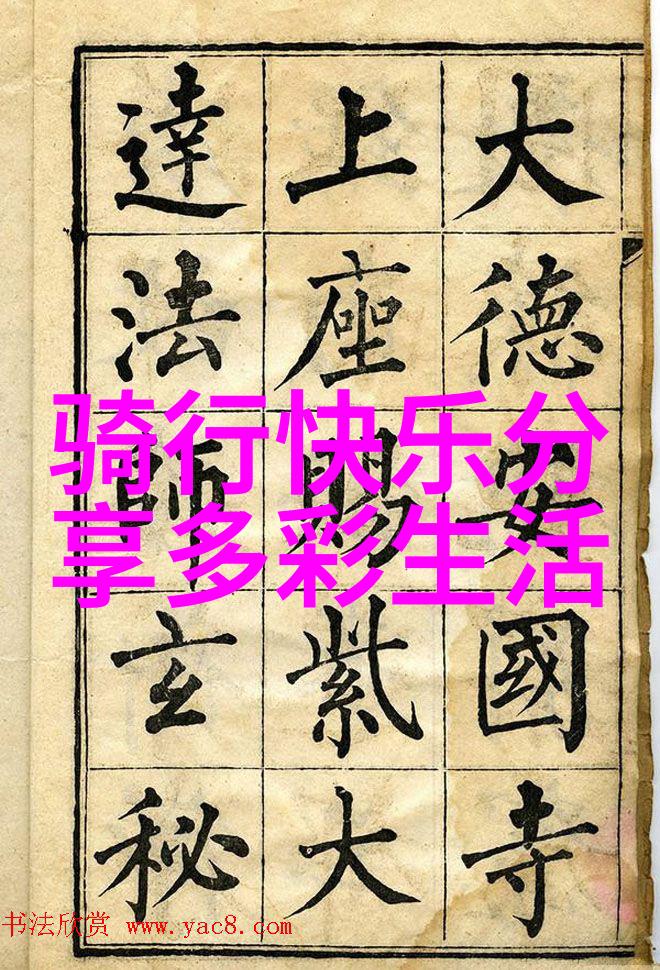 大德安國寺
上座賜紫大
達法師玄秘
骑行快乐分
享多彩生活
书法欣赏 www.yac8.com